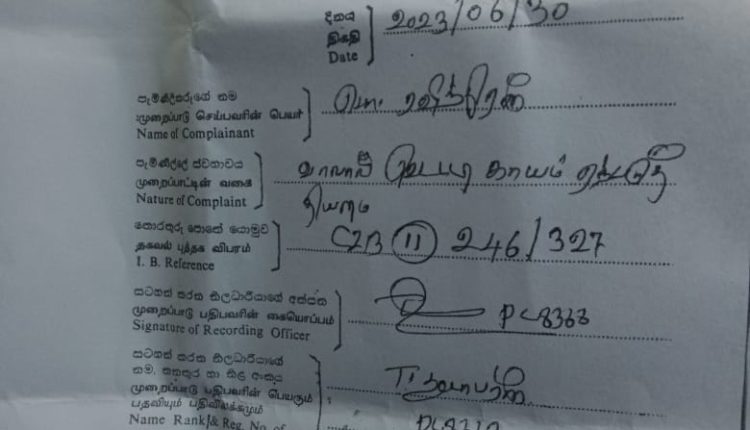 දිනය
திகதி
Date
2023/06/30
පැමිණිලිකරුගේ නම
முறைப்பாடு செய்பவரின் பெயர்
Name of Complainant
පැමිණිල්ලේ ස්වභාවය
முறைப்பாட்டின் வகை
Nature of Complaint
வாளால் வெட்டி காயம்
තොරතුරු පොතේ යොමුව
தகவல் புத்தக விபரம்
I. B. Reference
CIB 11 246/327
සටහන් කරන නිලධාරියාගේ අත්සන
முறைப்பாடு பதிபவரின் கையொப்பம்
Signature of Recording Officer
PC 8363
සටහන් කරන නිලධාරියාගේ
නම, තනතුර හා නිල අංකය
முறைப்பாடு பதிபவரின் பெயரும்
பதவியும் பதிவிலக்கமும்
Name Rank & Reg. No. of